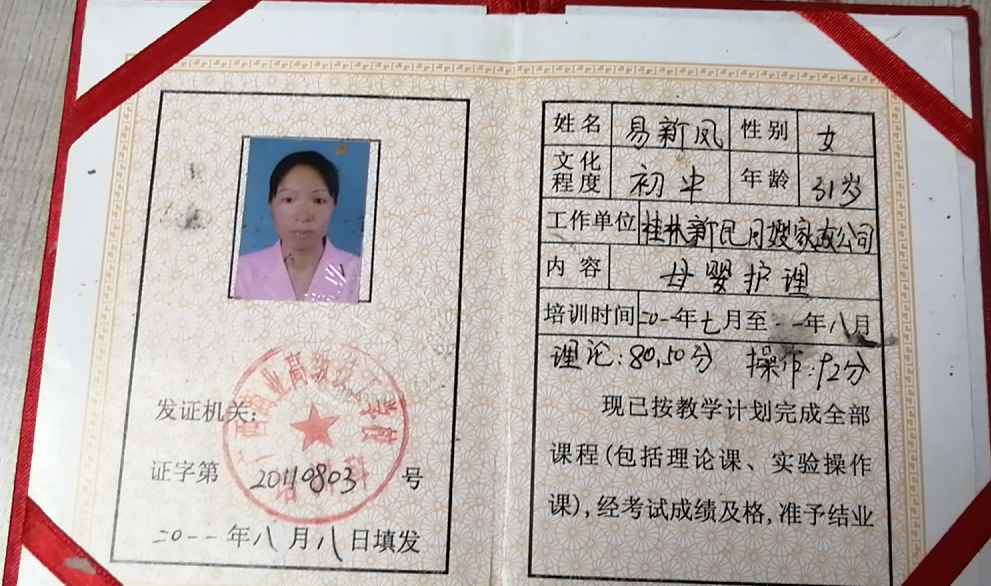 发证机关:
商业高级技工学校
证字第 20110803 号
二〇一一年八月八日填发
姓名 易新凤 性别 女
文化程度 初中 年龄 31岁
工作单位 桂林新民月嫂家政公司
内容 母婴护理
培训时间 二〇一一年七月至 一一年八月
理论:80.50分 操作:92分
现已按教学计划完成全部
课程(包括理论课、实验操作
课),经考试成绩及格,准予结业